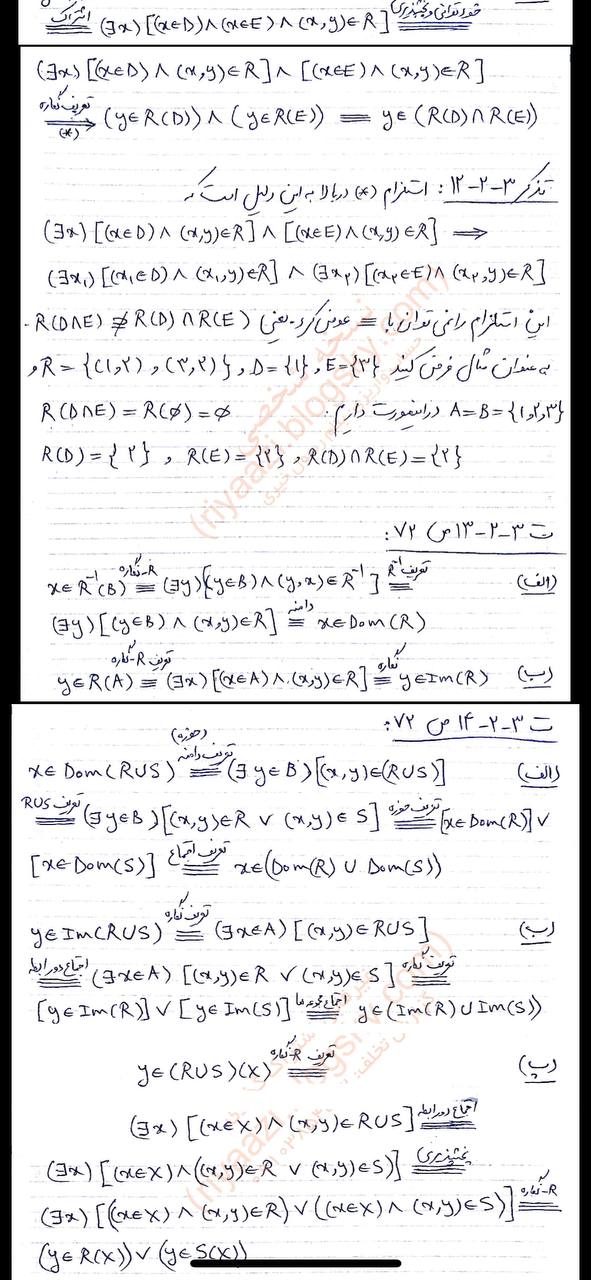 (∃x)[(x∈D)∧(x∈E)∧(x,y)∈R] خودتوانی و پخشپذیری ≡ اشتراک ≡
(∃x)[(x∈D)∧(x,y)∈R]∧[(x∈E)∧(x,y)∈R]
تعریف نگاره ⟹ (*) (y∈R(D))∧(y∈R(E)) ≡ y∈(R(D)∩R(E))
تذکر ۳-۲-۱۲: استلزام (*) در بالا به این دلیل است که
(∃x)[(x∈D)∧(x,y)∈R]∧[(x∈E)∧(x,y)∈R] ⟹
(∃x₁)[(x₁∈D)∧(x₁,y)∈R]∧(∃x₂)[(x₂∈E)∧(x₂,y)∈R]
این استلزام را نمی توان با ≡ عوض کرد. یعنی R(D∩E)⊉R(D)∩R(E).
به عنوان مثال فرض کنید R={(۱,۲),(۳,۲)}, D={۱}, E={۳} و
A=B={۱,۲,۳} در اینصورت داریم. R(D∩E)=R(∅)=∅
R(D)={۲}, R(E)={۲}, R(D)∩R(E)={۲}
ت ۳-۲-۱۳ ص ۷۲:
الف) x∈R⁻¹(B) R-نگاره ≡ (∃y)[(y∈B)∧(y,x)∈R⁻¹] تعریف R⁻¹ ≡
(∃y)[(y∈B)∧(x,y)∈R] دامنه ≡ x∈Dom(R)
ب) y∈R(A) تعریف R-نگاره ≡ (∃x)[(x∈A)∧(x,y)∈R] نگاره ≡ y∈Im(R)
ت ۳-۲-۱۴ ص ۷۲:
الف) x∈Dom(R∪S) تعریف دامنه (حوزه) ≡ (∃y∈B)[(x,y)∈(R∪S)]
تعریف R∪S ≡ (∃y∈B)[(x,y)∈R ∨ (x,y)∈S] تعریف حوزه ≡ [x∈Dom(R)]∨
[x∈Dom(S)] تعریف اجتماع ≡ x∈(Dom(R)∪Dom(S))
ب) y∈Im(R∪S) تعریف نگاره ≡ (∃x∈A)[(x,y)∈R∪S]
اجتماع دو رابطه ≡ (∃x∈A)[(x,y)∈R ∨ (x,y)∈S] تعریف نگاره ≡
[y∈Im(R)]∨[y∈Im(S)] اجتماع مجموعه ها ≡ y∈(Im(R)∪Im(S))
پ) y∈(R∪S)(X) تعریف R-نگاره ≡
(∃x)[(x∈X)∧(x,y)∈R∪S] اجتماع دو رابطه ≡
(∃x)[(x∈X)∧((x,y)∈R ∨ (x,y)∈S)] پخشپذیری ≡
(∃x)[((x∈X)∧(x,y)∈R)∨((x∈X)∧(x,y)∈S)] R-نگاره ≡
(y∈R(X))∨(y∈S(X))
نسخه شخصی
(riyaazi.blogsky.com)